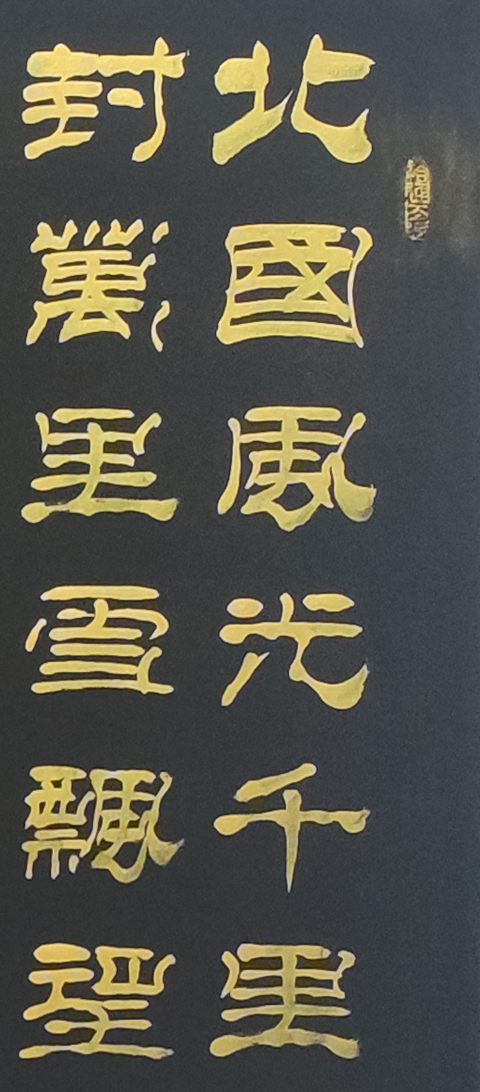 北國風光千里
封萬里雪飄望